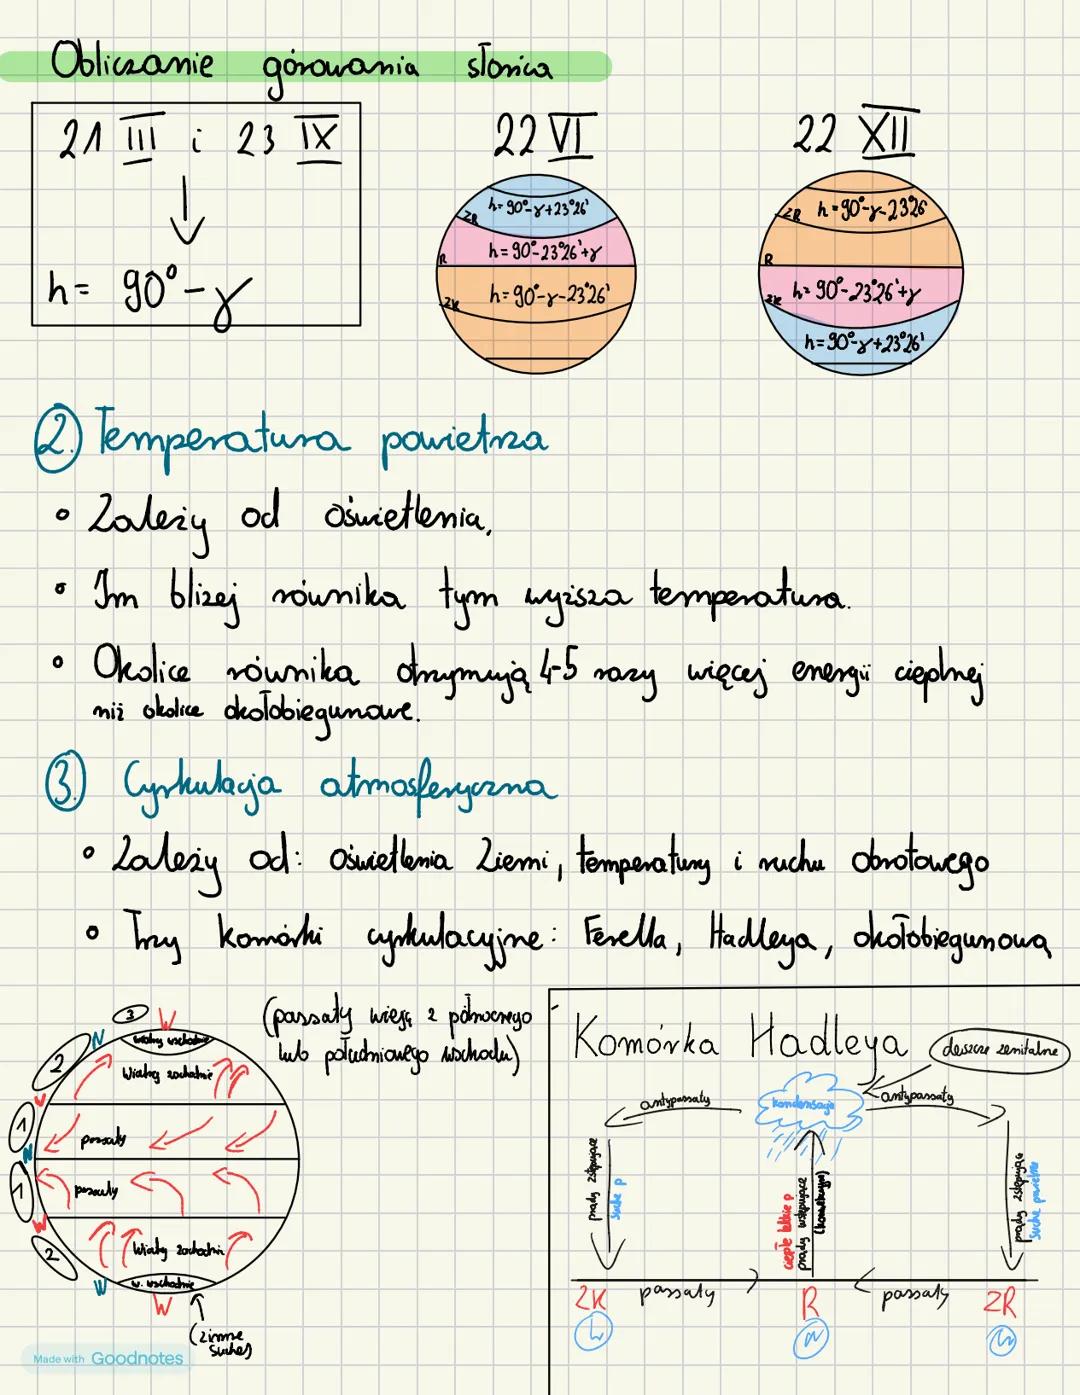 Obliczanie górowania słońca
21 III i 23 IX
h = 90° - γ
22 VI
ZR h = 90° - γ + 23°26'
R h = 90° - 23°26' + γ
ZK h = 90° - γ - 23°26'
22 XII
ZR h = 90° - γ - 23°26
R
ZK h = 90° - 23°26' + γ
h = 90° - γ + 23°26'
2. Temperatura powietrza
• Zależy od oświetlenia.
• Im bliżej równika tym wyższa temperatura.
• Okolice równika otrzymują 4-5 razy więcej energii cieplnej
niż okolice okołobiegunowe.
3. Cyrkulacja atmosferyczna
• Zależy od: oświetlenia Ziemi, temperatury i ruchu obrotowego
• Trzy komórki cyrkulacyjne: Ferella, Hadleya, okołobiegunowa
(passaty wieją z północnego
lub południowego wschodu)
3 W
N wiatry wschodnie
2 Wiatry zachodnie
W
1 passaty
N
1 passaty
W
2 Wiatry zachodnie
W w. wschodnie
W
(zimne
suche)
Komórka Hadleya
deszcze zenitalne
antypassaty
kondensacja
antypassaty
prądy zstępujące
suche p
ciepłe lekkie p
prądy wstępujące
(konwekcyjne)
prądy zstępujące
suche powietrze
ZK passaty R passaty ZR
W N W
Made with Goodnotes